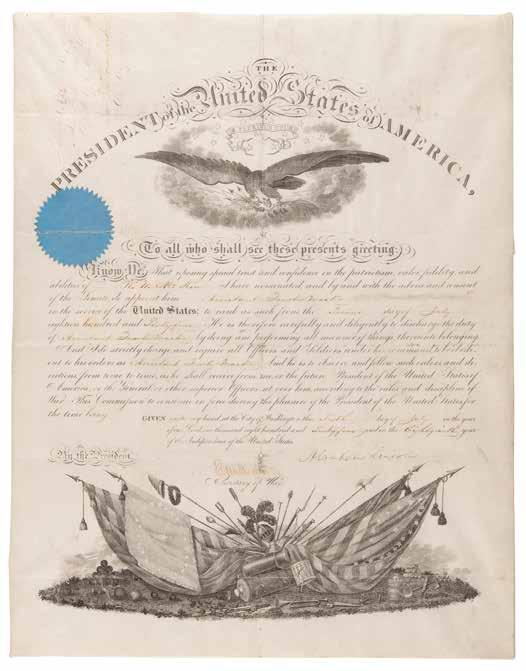 THE
PRESIDENT of the United States of AMERICA,
To all who shall see these presents greeting:
Know Ye, That reposing special trust and confidence in the patriotism, valor, fidelity, and
abilities of I have nominated and by and with the advice and consent
of the Senate, do appoint him Assistant Quartermaster
in the service of the United States: to rank as such from the day of July
eighteen hundred and He is therefore carefully and diligently to discharge the duty
of Assistant Quartermaster by doing and performing all manner of things thereunto belonging.
And I do strictly charge, and require all Officers and Soldiers under his command to be obedi-
ent to his orders as Assistant Quartermaster And he is to observe and follow such orders, and di-
rections from time to time, as he shall receive from me, or the future President of the United States of
America, or the General or other superior Officers set over him, according to the rules and discipline of
War. This Commission to continue in force during the pleasure of the President of the United States for
the time being.
GIVEN under my hand at the City of Washington this day of July in the year
of our Lord one thousand eight hundred and and in the year
of the Independence of the United States.
By the President
Abraham Lincoln
Secretary of War